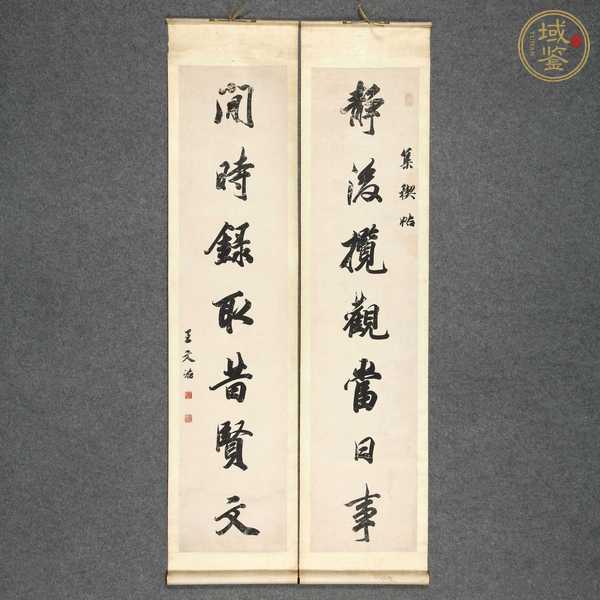 靜後攬觀當日事
集禊帖
閒時錄取昔賢文
王文治
域鑒
YUJIAN